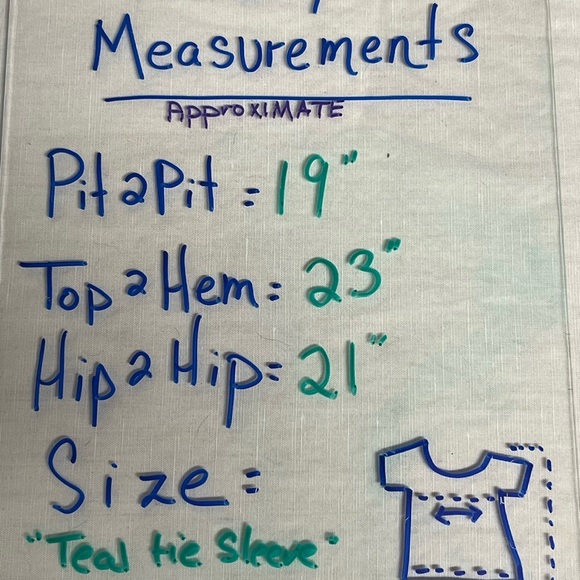 Measurements
ApproxIMATE
Pit2Pit = 19"
Top2Hem = 23"
Hip2Hip = 21"
Size =
"Teal tie Sleeve"